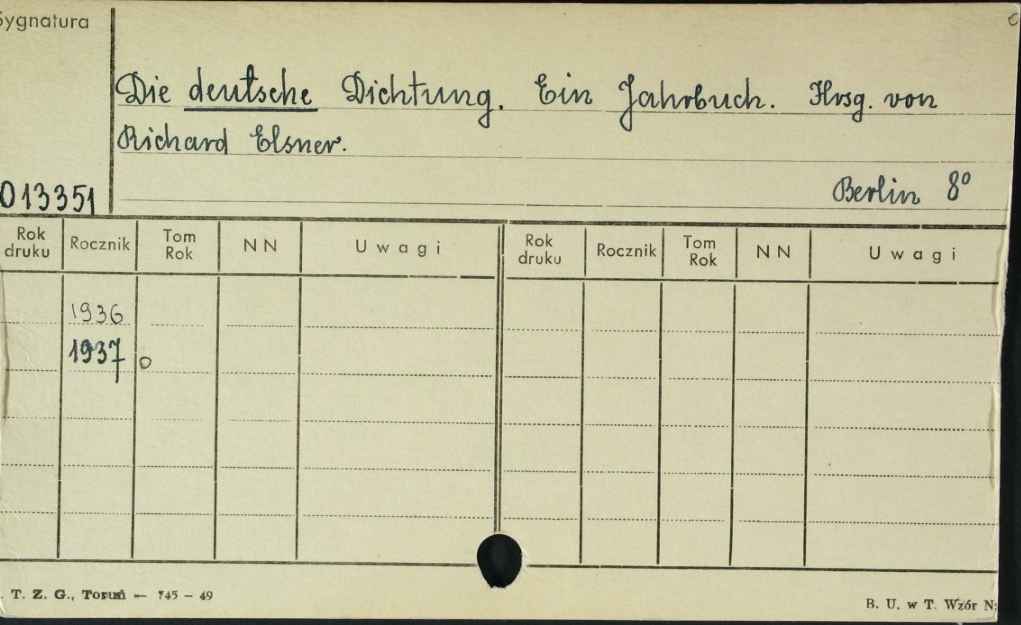 Sygnatura
Die deutsche Dichtung. Ein Jahrbuch. Hrsg. von
Richard Elsner.
013351
Berlin 8°
Rok druku Rocznik Tom Rok NN Uwagi Rok druku Rocznik Tom Rok NN Uwagi
1936
1937 o
. T. Z. G., Toruń — 745 – 49
B. U. w T. Wzór N